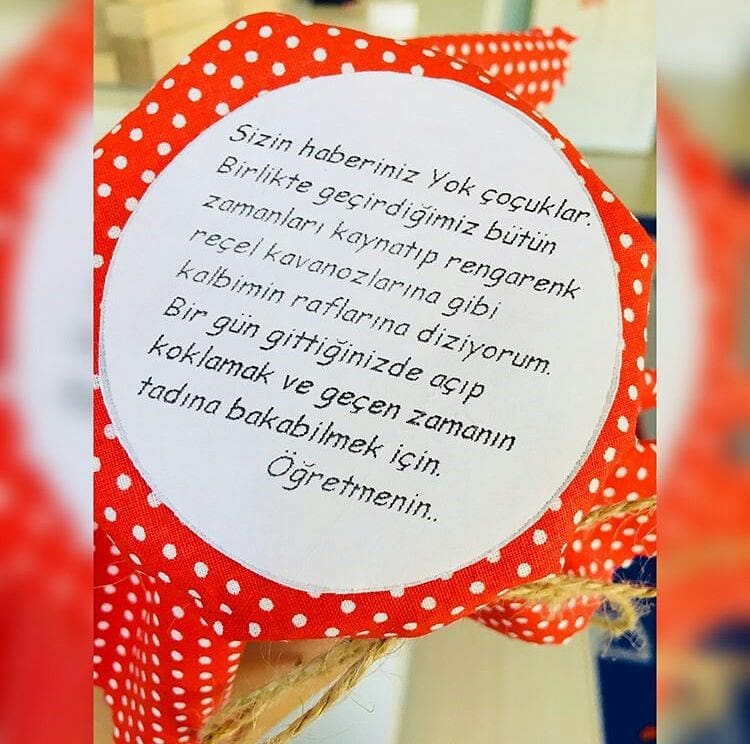 Sizin haberiniz Yok çoçuklar.
Birlikte geçirdiğimiz bütün
zamanları kaynatıp rengarenk
reçel kavanozlarına gibi
kalbimin raflarına diziyorum.
Bir gün gittiğinizde açıp
koklamak ve geçen zamanın
tadına bakabilmek için.
Öğretmenin..